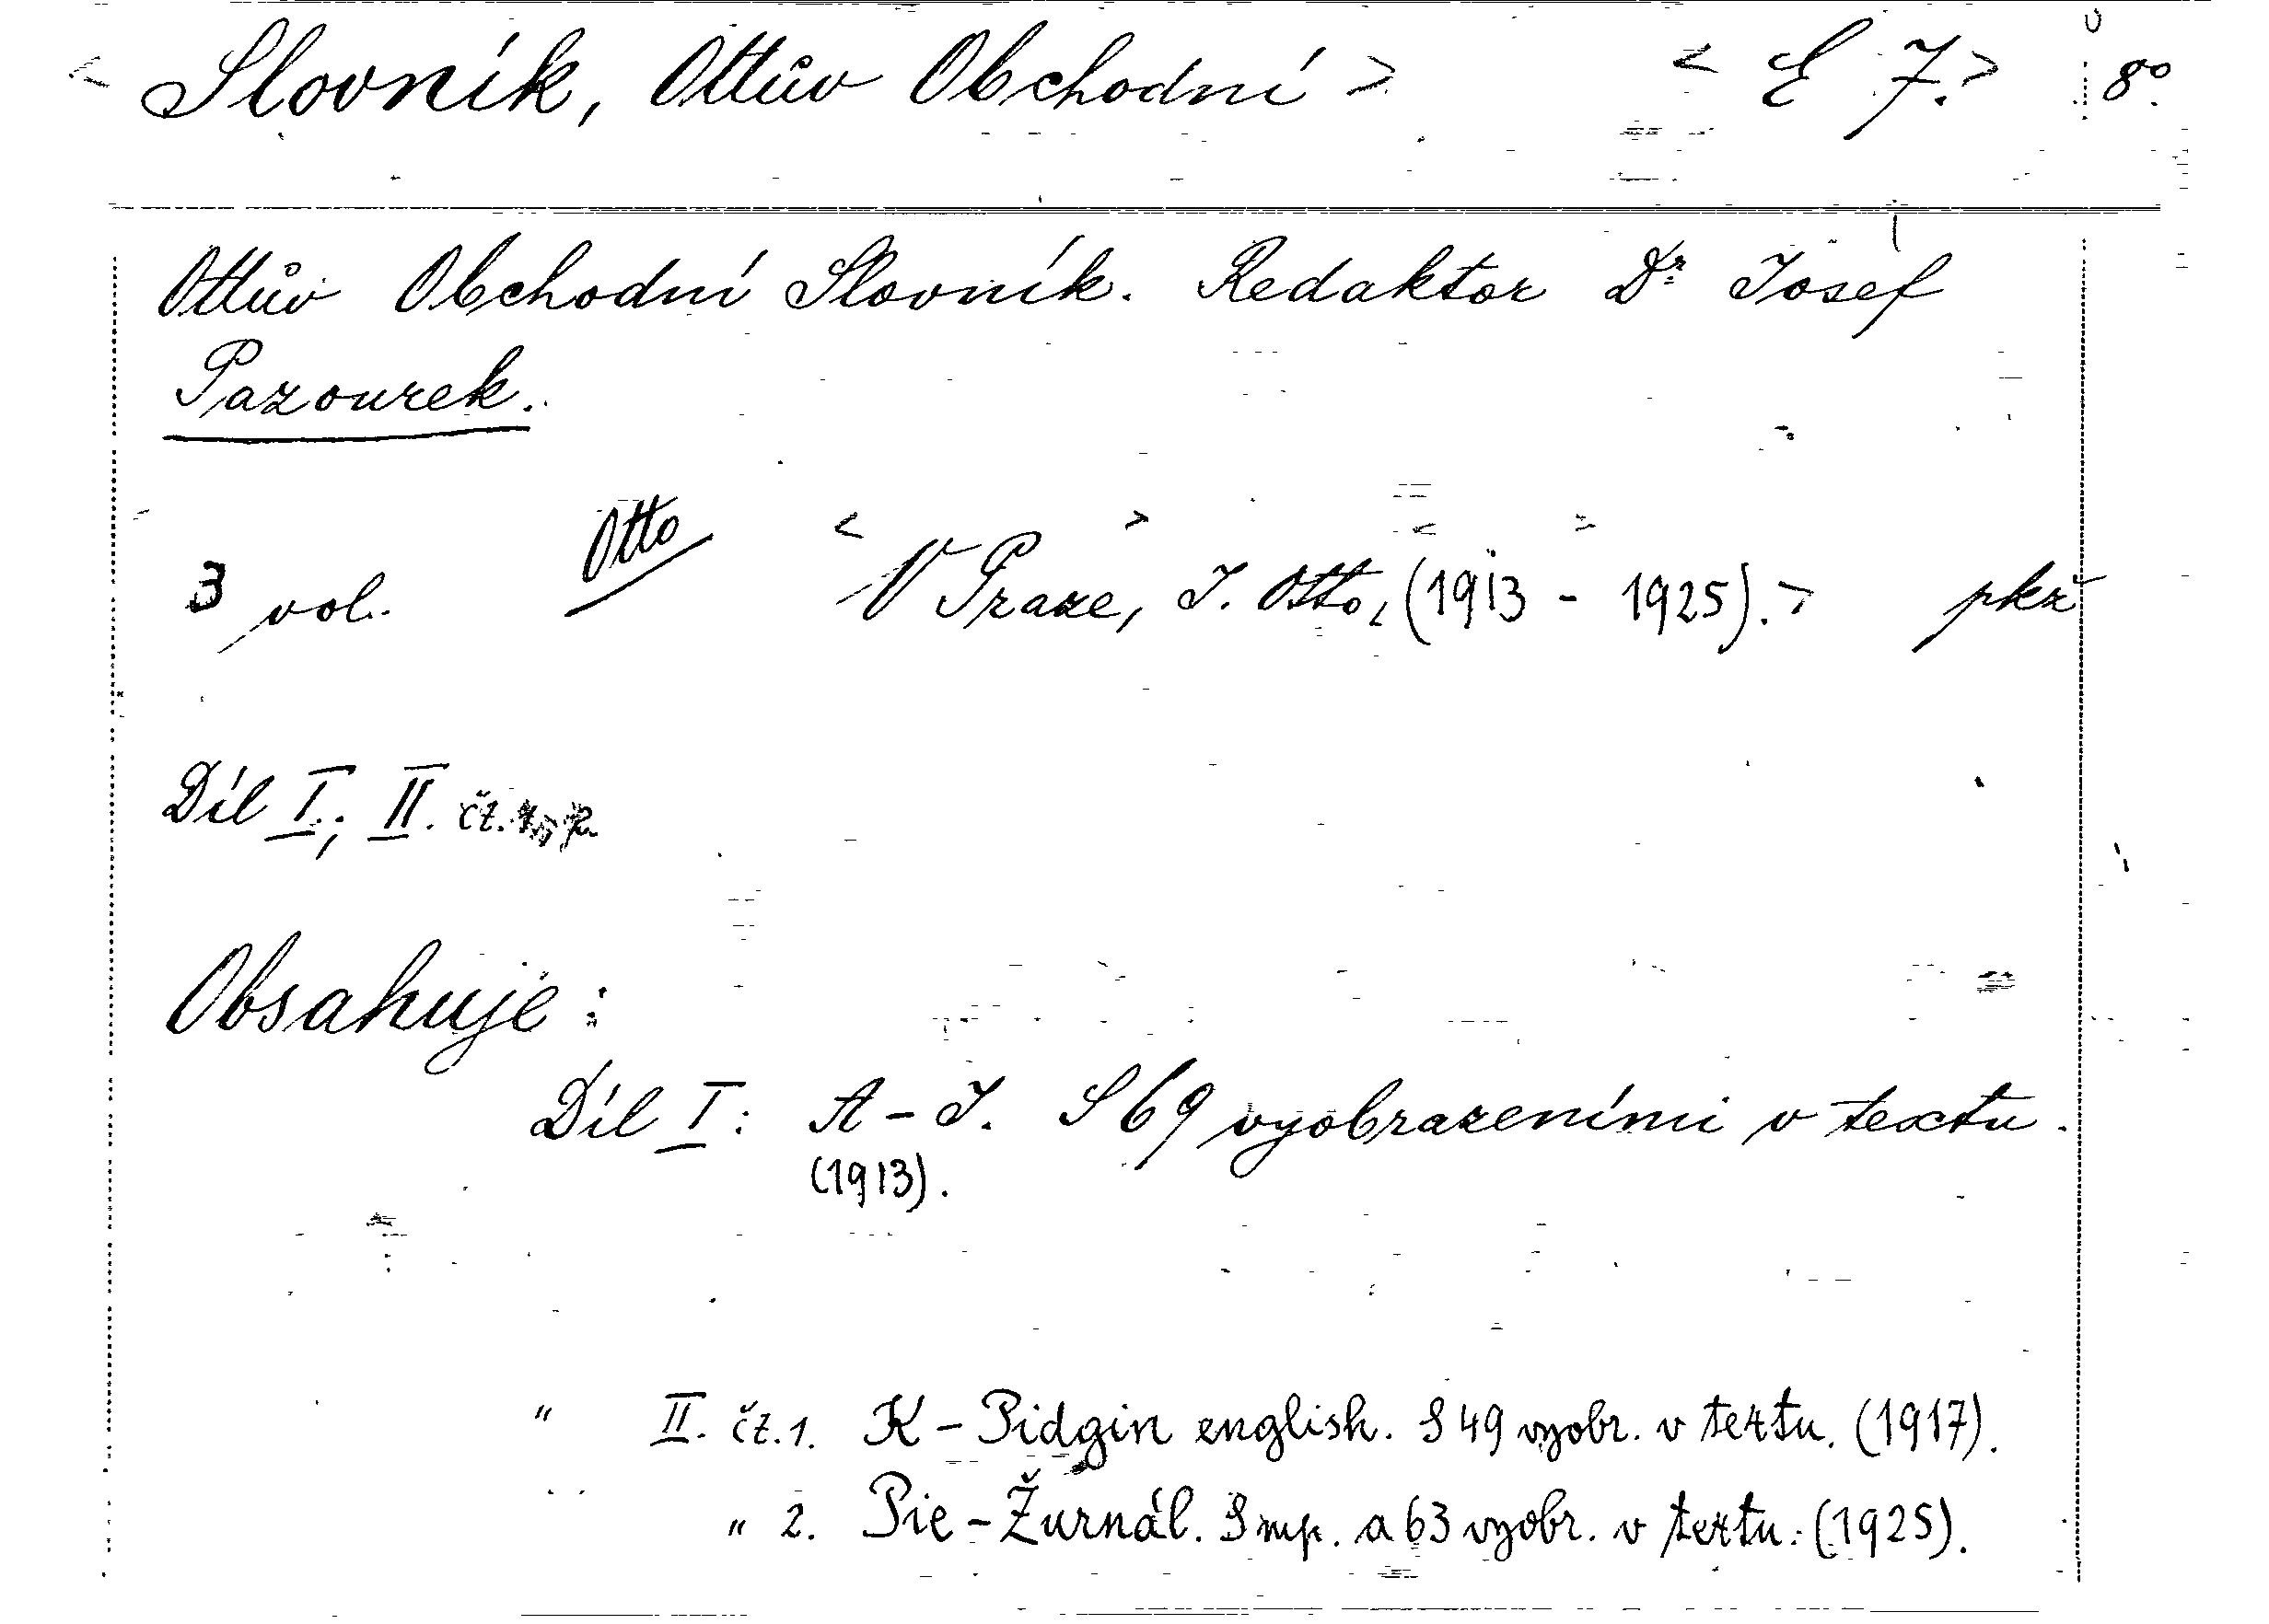 < Slovník, Ottův Obchodní > < E 7. > 8°.
Ottův Obchodní Slovník. Redaktor Dr. Josef
Pazourek.
Otto
3 vol. < V Praze, > J. Otto, < (1913 - 1925). > pkr
Díl I.; II. čt.
Obsahuje:
Díl I: A - J. S 69 vyobrazeními v textu.
(1913).
" II. čt. 1. K - Pidgin english. S 49 vyobr. v textu. (1917).
" 2. Pie - Žurnál. S mp. a 63 vyobr. v textu. (1925).